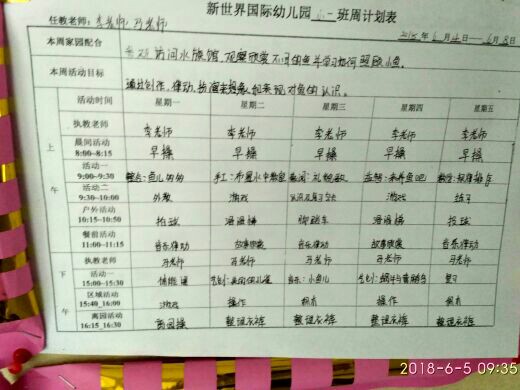 新世界国际幼儿园 小一 班周计划表
任教老师：李老师 马老师
2018年6月4日—6月8日
本周家园配合 去 访问水族馆，观察欣赏不同的鱼并学习如何照顾小鱼。
本周活动目标 通过创作、律动、扮演去想象和表现对鱼的认识。
活动时间 星期一 星期二 星期三 星期四 星期五
上午
执教老师 李老师 李老师 李老师 李老师 李老师
晨间活动 8:00—8:15 早操 早操 早操 早操 早操
活动一 9:00—9:30
活动二 9:30—10:00 外教 游戏 游戏
户外活动 10:15—10:50 拍球 滑滑梯 脚踏车 滑滑梯 拍球
餐前活动 11:00—11:15 音乐律动 故事欣赏 音乐律动 故事欣赏 音乐律动
下午
执教老师 马老师 马老师 马老师 马老师 马老师
活动一 15:00—15:30 音乐：小鱼儿 复习
区域活动 15:40_16:00 游戏 操作 操作
离园活动 16:15_16:30 离园操 整理衣裤 整理衣裤 整理衣裤 整理衣裤
2018-6-5 09:35